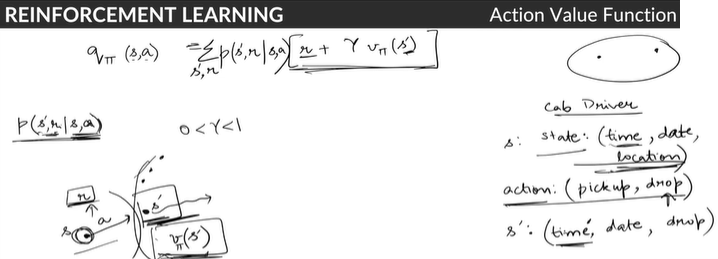 REINFORCEMENT LEARNING
Action Value Function
qπ (s,a) = Σ s',r p(s',r|s,a) [r + γ vπ(s')]
p(s',r|s,a)
0<γ<1
r
a
s
s'
vπ(s')
Cab Driver
s: state: (time, date, location)
action: (pickup, drop)
s': (time', date, drop)